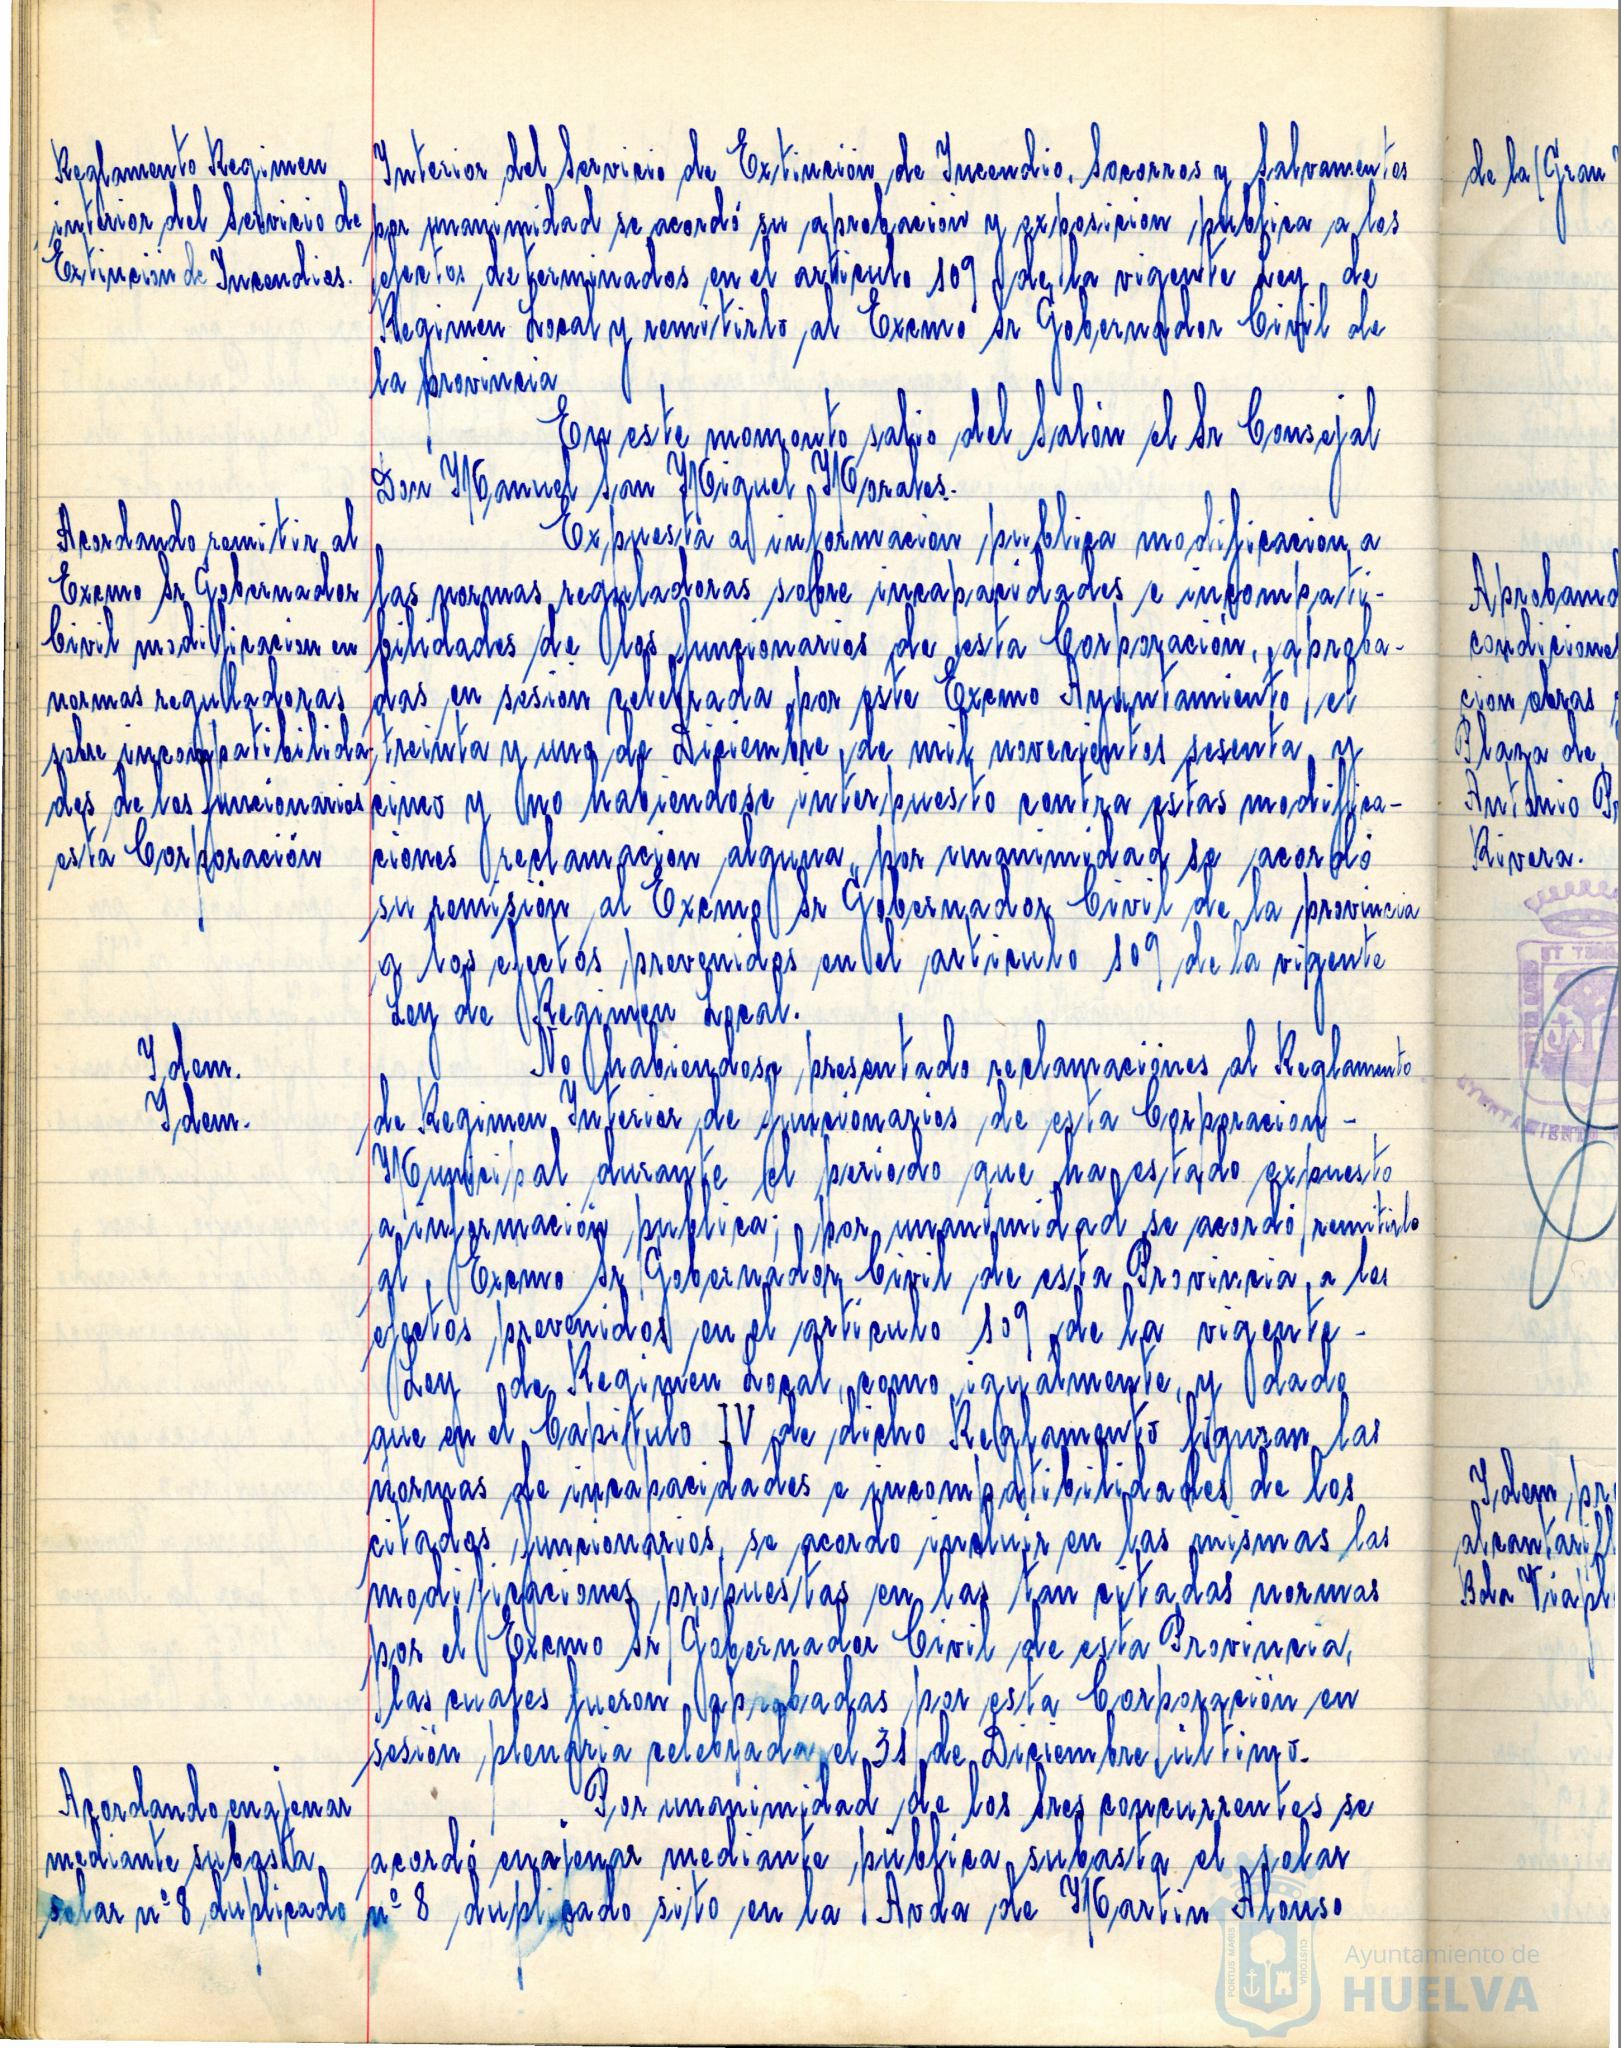 Reglamento Regimen
interior del Servicio de
Extinción de Incendios.
Interior del Servicio de Extinción de Incendio, Socorros y Salvamentos
por unanimidad se acordó su aprobacion y exposicion publica a los
efectos determinados en el articulo 109 de la vigente Ley de
Regimen Local y remitirlo al Excmo Sr Gobernador Civil de
la provincia
En este momonto salio del Salón el Sr Consejal
Don Manuel San Miguel Morales.
Acordando remitir al
Excmo Sr Gobernador
Civil modificacion en
normas reguladoras
sobre incompatibilida
des de los funcionarios
esta Corporación
Expuesta a informacion publica modificacion a
las normas reguladoras sobre incapacidades e incompati-
bilidades de los funcionarios de esta Corporación, aproba-
das en sesion celebrada por este Excmo Ayuntamiento, el
treinta y uno de Diciembre de mil novecientos sesenta y
cinco y no habiendose interpuesto contra estas modifica-
ciones reclamacion alguna, por unanimidad se acordó
su remision al Excmo Sr Gobernador Civil de la provincia
a los efectos prevenidos en el articulo 109 de la vigente
Ley de Regimen Local.
Idem.
Idem.
No habiendose presentado reclamaciones al Reglamento
de Regimen Interior de funcionarios de esta Corporacion -
Municipal durante el periodo que ha estado expuesto
a información publica; por unanimidad se acordó remitirlo
al Excmo Sr Gobernador Civil de esta Provincia a los
efectos prevenidos en el articulo 109 de la vigente -
Ley de Regimen Local, como igualmente, y dado
que en el Capitulo IV de dicho Reglamento figuran las
normas de incapacidades e incompatibilidades de los
citados funcionarios, se acordo incluir en las mismas las
modificaciones propuestas en las tan citadas normas
por el Excmo Sr Gobernador Civil de esta Provincia,
las cuales fueron aprobadas por esta Corporación en
sesión plenaria celebrada el 31 de Diciembre último.
Acordando enajenar
mediante subasta
solar nº 8 duplicado
Por unanimidad de los Sres concurrentes se
acordó enajenar mediante pública subasta el solar
nº 8 duplicado sito en la Avda de Martin Alonso
de la Gran
Aproband
condicione
cion obras
Plaza de
Antonio
Rivera.
Idem
alcantarill
Bda Viapl
PORTUS MARIS CUSTODIA
Ayuntamiento de
HUELVA